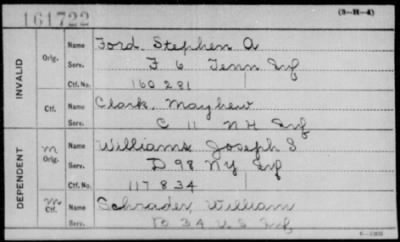 161722
(3-H-4)
INVALID
Orig.
Name Ford, Stephen A
Serv. F 6 Tenn Inf
Ctf. No. 160281
Ctf.
Name Clark, Mayhew
Serv. C 11 NH Inf
DEPENDENT
M
Orig.
Name Williams Joseph S
Serv. D 98 NY Inf
Ctf. No. 117834
M
Ctf.
Name Schrader, William
Serv. B 34 U S Inf